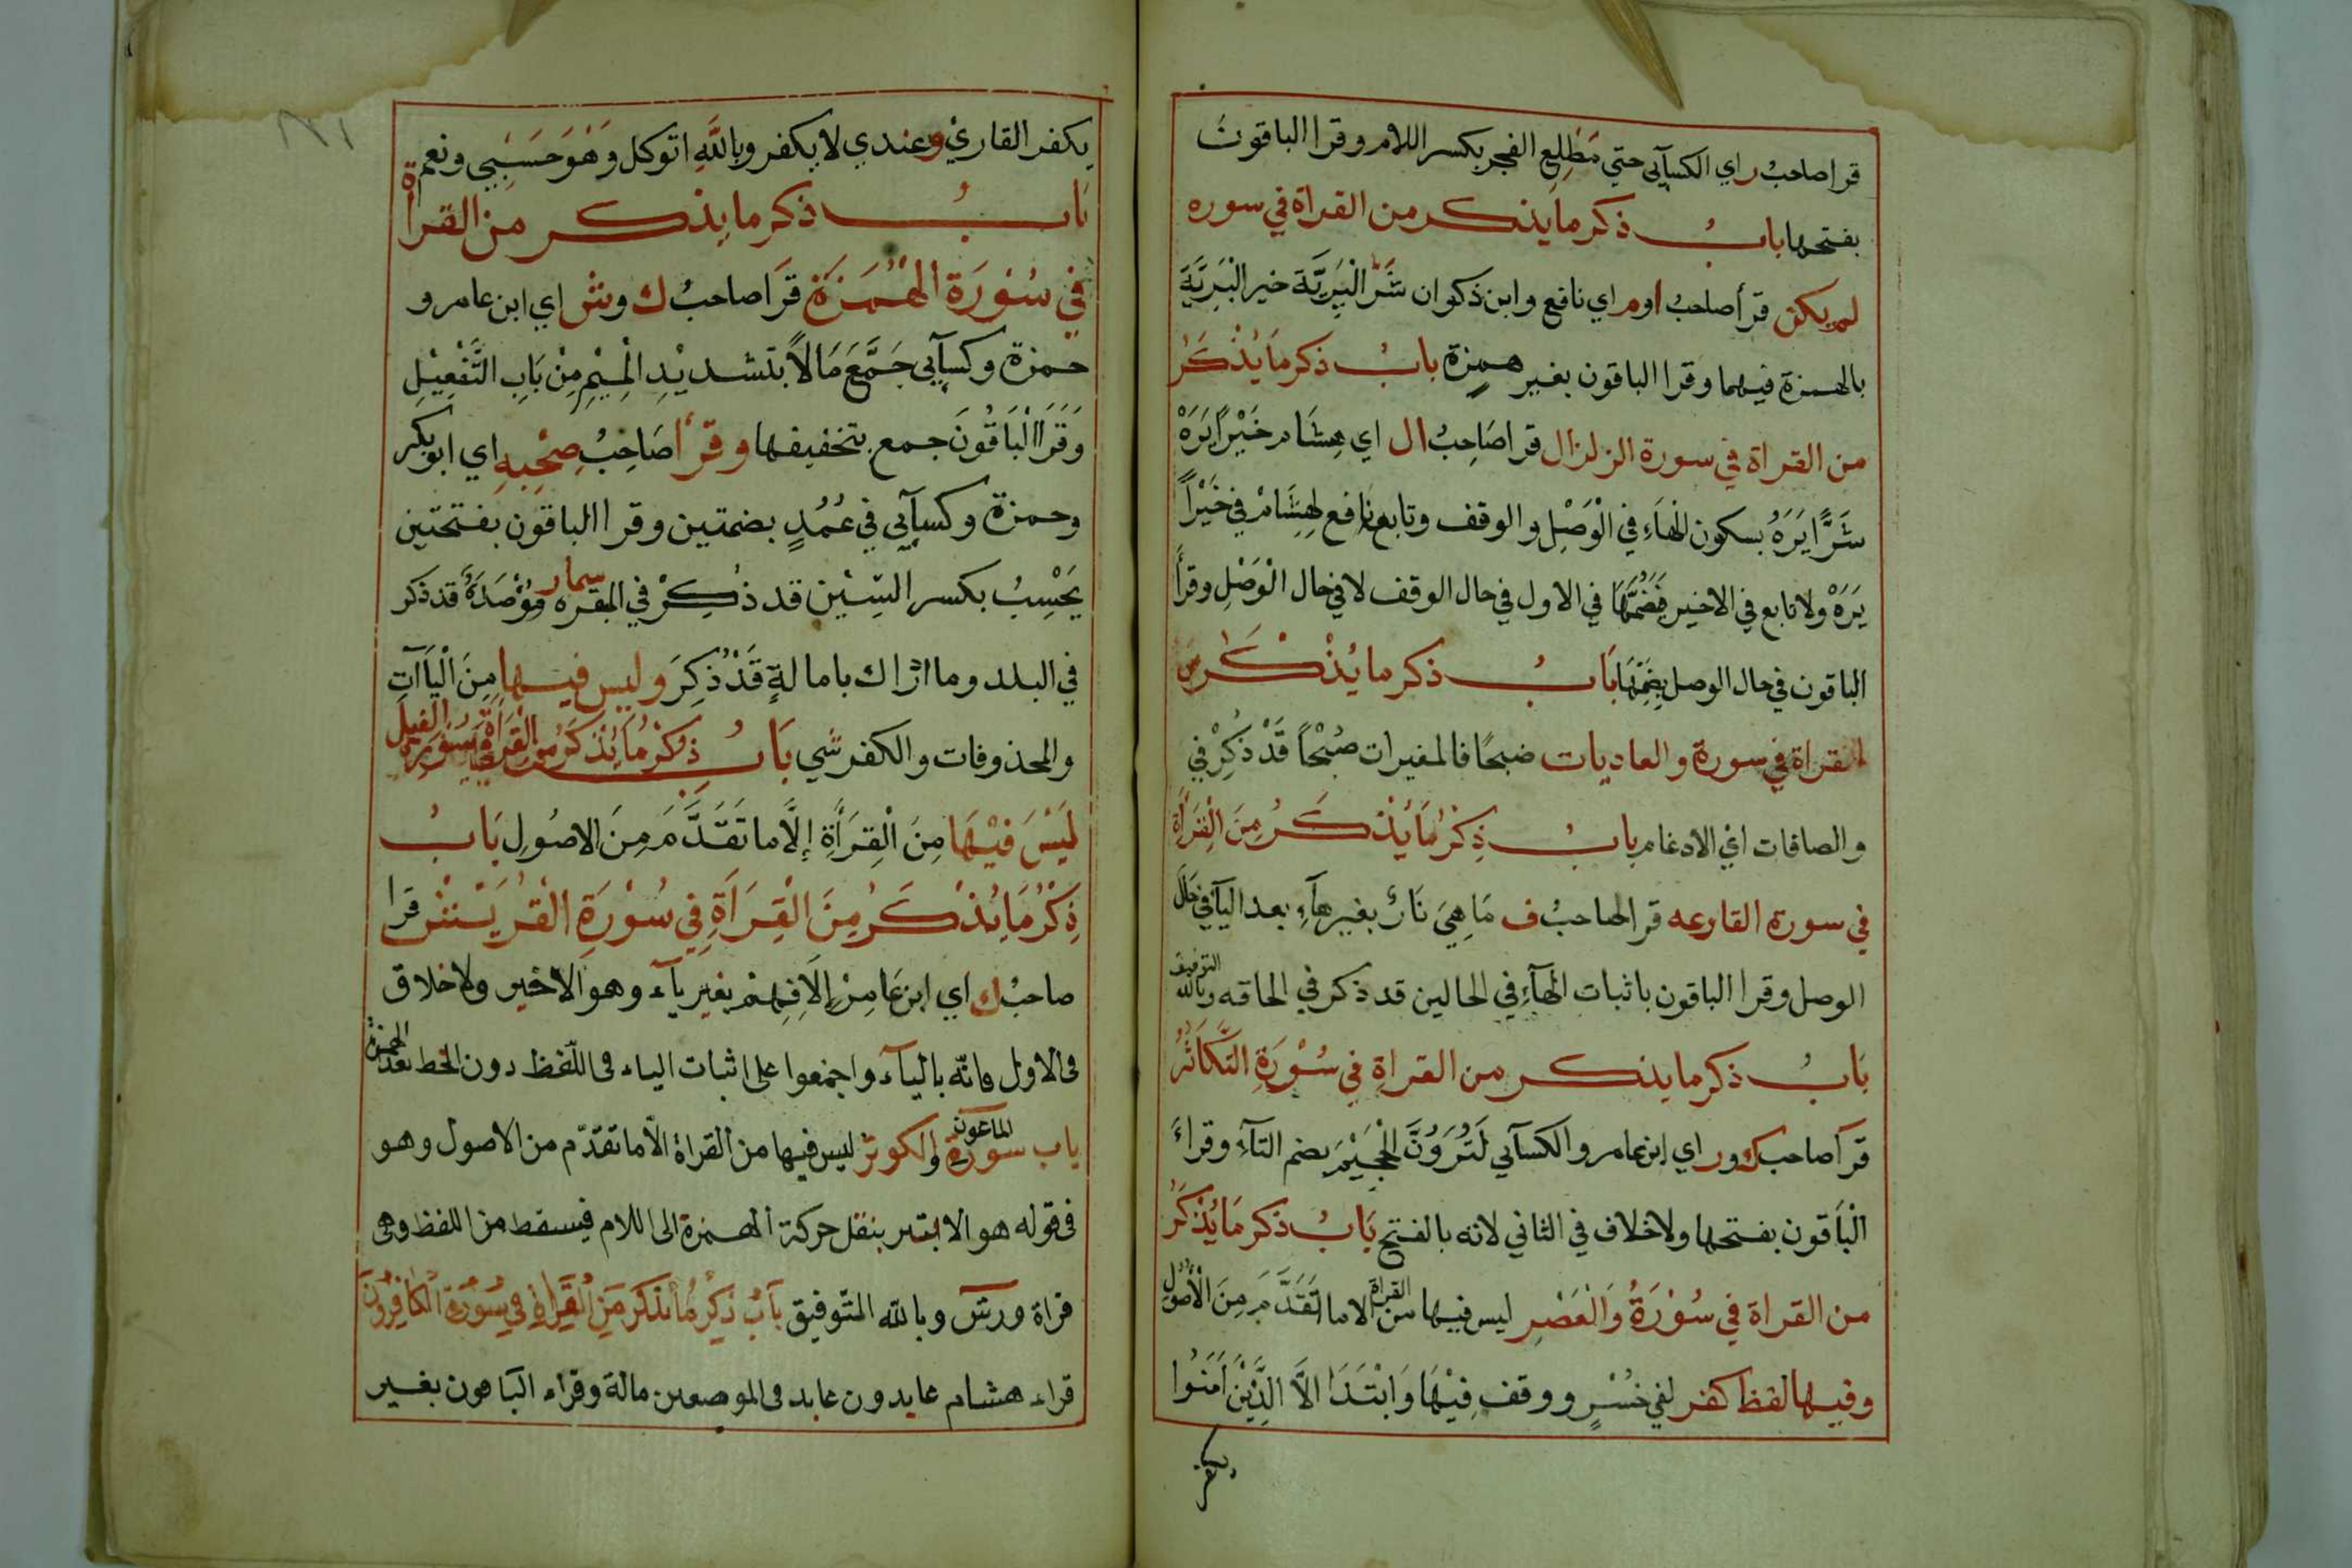 قرا صاحبُ راي الكسآئى حتي مَطْلِعِ الفجر بكسر اللام وقرا الباقون
بفتحها بابُ ذكر ما يذكر من القراة في سوره
لم يكن قرأ صاحبُ اوم اي نافع وابن ذكوان شَرُّ الْبَرِيَّة خير الْبَرِيَّةِ
بالهمزة فيهما وقرا الباقون بغير همزة بابُ ذكر مَا يُذْكَرُ
من القراة في سورة الزلزال قرا صَاحِبُ ال اي هِشَام خَيْرًا يَرَهْ
شَرًّا يَرَهُ بسكون الهَاءِ في الْوَصْلِ والوقف وتابع نافع لهِشَامْ في خَيْرًا
يَرَهْ ولا تابع في الاخير فَضُمَّهَا في الاول في حال الوقف لا في حال الْوَصْلِ وقرأ
الباقون في حال الوصل بِضَمِّهَا بَابُ ذكر ما يُذْكَرُ من
القراة في سورة والعاديات ضبحًا فالمغيرات صُبْحًا قَدْ ذُكِرْ في
والصافات اي الادغام بابُ ذِكْرُ مَا يُذْكَرُ مِنَ الْقِرَأَةِ
في سورة القارعه قرا صاحبُ ف مَا هِيَ نَارٌ بغير هآءِ بعد اليآ في حَال
الوصل وقرا الباقون باثبات الهآءِ في الحالين قد ذكر في الحاقه وبالله التوفيق
بَابُ ذكر ما يذكر من القراةِ في سُوْرَةِ التَّكَاثُرُ
قرآ صاحب ك ور اي ابن عامر والكسآئي لَتُرَوُنَّ الْجَحِيْمَ بضم التآءِ وقراءَ
الْبَاقون بفتحها ولا خلاف في الثاني لانه بالفتح بَابُ ذكر مَا يُذْكَرُ
من القراة في سُوْرَةُ وَالْعَصْرِ ليس فيها من القراة الا ما تَقَدَّمَ مِنَ الْأُصُولِ
وفيها لفظ كفر لفي خُسْرٍ ووقف فِيْهَا وَابْتَدَا الاَّ الَّذِيْنَ اَمَنُوا
يكفر
يكفر القاري وعندي لا يكفر وبالله اتوكل وَهْوَ حَسْبِي ونعم
بَابُ ذكر ما يذكر من القرأة
في سُوْرَة الْهُمَزَة قرَا صاحبُ ك وش اي ابن عامر و
حمزة وكسآئي جَمَّعَ مَالاً بتشديْدِ الْمِيْمِ مِنْ بَابِ التَّفْعِيْلِ
وَقَرَا الْبَاقُونَ جمع بتخفيفها وقرأ صَاحِبُ صُحْبِه اي ابو بكر
وحمزة وكسآئي في عُمُدٍ بضمتين وقرا الباقون بفتحتين
يَحْسِبُ بكسر السِّيْن قد ذُكِرْ في البقره مُؤْصَدَةٌ قد ذكر
في البلد وما ادراك بامالةٍ قَدْ ذُكِرَ وليس فيها مِنَ الْيَاآتِ
والمحذوفات والكفر شي بَابُ ذِكْرُ مَا يُذْكَرُ مِنَ الْقِرَأَةِ في سُوْرَةِ الفيل
لَيْسَ فِيْهَا مِنَ الْقِرَأَةِ إِلَّا مَا تَقَدَّمَ مِنَ الاصُولِ بَابُ
ذِكْرُ مَا يُذْكَرُ مِنَ الْقِرَأَةِ فِي سُوْرَةِ الْقُرَيْش قرا
صاحبُ ك اي ابن عَامِرْ إلَافِهِمْ بغير يآء وهو الاخير ولا خلاف
فى الاول فانّه باليآء واجمعوا على اثبات الياء فى اللّفظ دون الخط بعد الهمزة
باب سورة الماعون والكوثر ليس فيها من القراة الّا ما تقدّم من الاصول وهو
فى قوله هو الابتر بنقل حركة الهمزة الى اللام فيسقط من اللفظ وهى
قراة ورش وبالله التّوفيق بَابُ ذِكْرُ مَا يُذْكَرُ مِنَ الْقِرَاةِ فِي سُوْرَةِ الْكَافِرُونَ
قراء هشام عابدون عابد فى الموضعين مالة وقراء البَاقون بغير